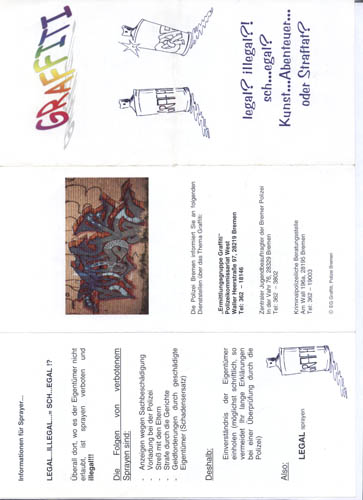 GRAFFITI
GRAFFITI
legal? illegal?!
sch...egal?
Kunst...Abenteuer...
oder Straftat?
Die Polizei Bremen informiert Sie an folgenden
Dienststellen über das Thema Graffiti:
„Ermittlungsgruppe Graffiti“
Polizeikommissariat West
Waller Heerstraße 97, 28219 Bremen
Tel: 362 – 18146
Zentraler Jugendbeauftragter der Bremer Polizei
In der Vahr 76, 28329 Bremen
Tel: 362 – 3802
Kriminalpolizeiliche Beratungsstelle
Am Wall 196a, 28195 Bremen
Tel: 362 – 19003
© EG Graffiti, Polizei Bremen
Informationen für Sprayer...
LEGAL...ILLEGAL...= SCH...EGAL !?
Überall dort, wo es der Eigentümer nicht
erlaubt, ist sprayen verboten und
illegal!!!
Die Folgen von verbotenem
Sprayen sind:
- Anzeigen wegen Sachbeschädigung
- Vorladung bei der Polizei
- Streß mit den Eltern
- Strafe durch die Gerichte
- Geldforderungen durch geschädigte
Eigentümer (Schadensersatz)
Deshalb:
Einverständnis der Eigentümer
einholen (möglichst schriftlich, so
vermeidet Ihr lange Erklärungen
bei einer Überprüfung durch die
Polizei)
Also:
LEGAL sprayen